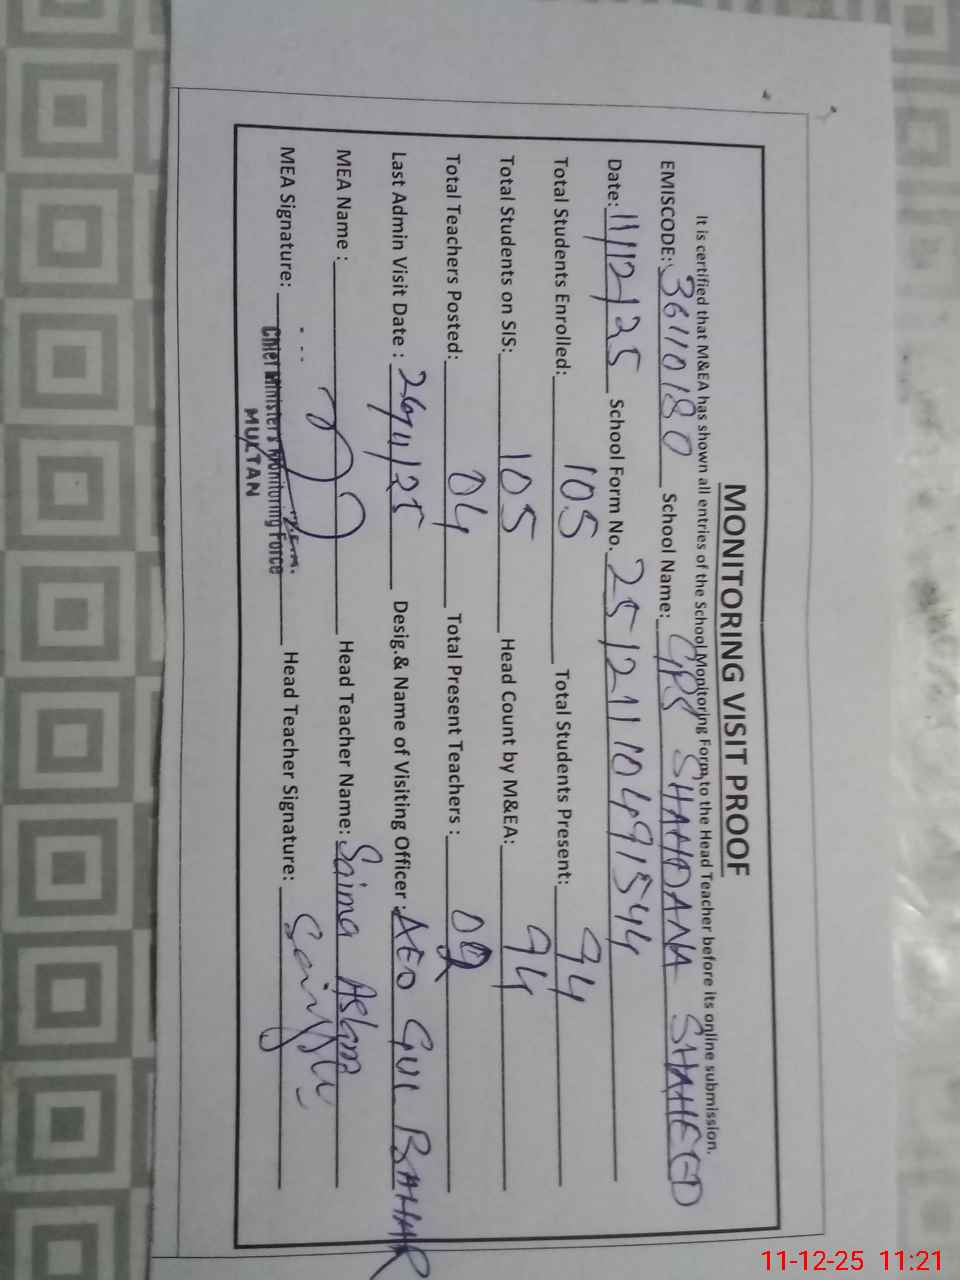 MONITORING VISIT PROOF
It is certified that M&EA has shown all entries of the School Monitoring Form to the Head Teacher before its online submission.
EMISCODE: 36110180 School Name: GPS SHAHDANA SHAHEED
Date: 11/12/25 School Form No. 25121110491544
Total Students Enrolled: 105 Total Students Present: 94
Total Students on SIS: 105 Head Count by M&EA: 94
Total Teachers Posted: 04 Total Present Teachers :
Last Admin Visit Date : 26/11/25 Desig.& Name of Visiting Officer : AEO GUL BAHAR
MEA Name : Head Teacher Name: Saima Aslam
MEA Signature: Head Teacher Signature:
Chief Minister's Monitoring Force
MULTAN
11-12-25 11:21